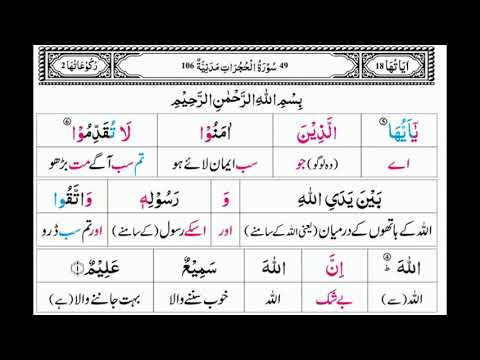 اٰیَاتُهَا 18 49 سُوْرَةُ الْحُجُرَاتِ مَدَنِيَّةٌ 106 رُكُوْعَاتُهَا 2
بِسْمِ اللهِ الرَّحْمٰنِ الرَّحِيْمِ
يٰۤاَيُّهَا ⑤ الَّذِيْنَ اٰمَنُوْا لَا تُقَدِّمُوْا ⑥
اے (وہ لوگو) جو سب ایمان لائے ہو تم سب آگے مت بڑھو
بَيْنَ يَدَيِ اللهِ وَ رَسُوْلِهٖ وَاتَّقُوا
اللہ کے ہاتھوں کے درمیان (یعنی اللہ کے سامنے) اور اسکے رسول (کے سامنے) اور تم سب ڈرو
اللهَ ؕ ④ اِنَّ اللهَ سَمِيْعٌ عَلِيْمٌ ①
اللہ (سے) بے شک اللہ خوب سننے والا بہت جاننے والا (ہے)